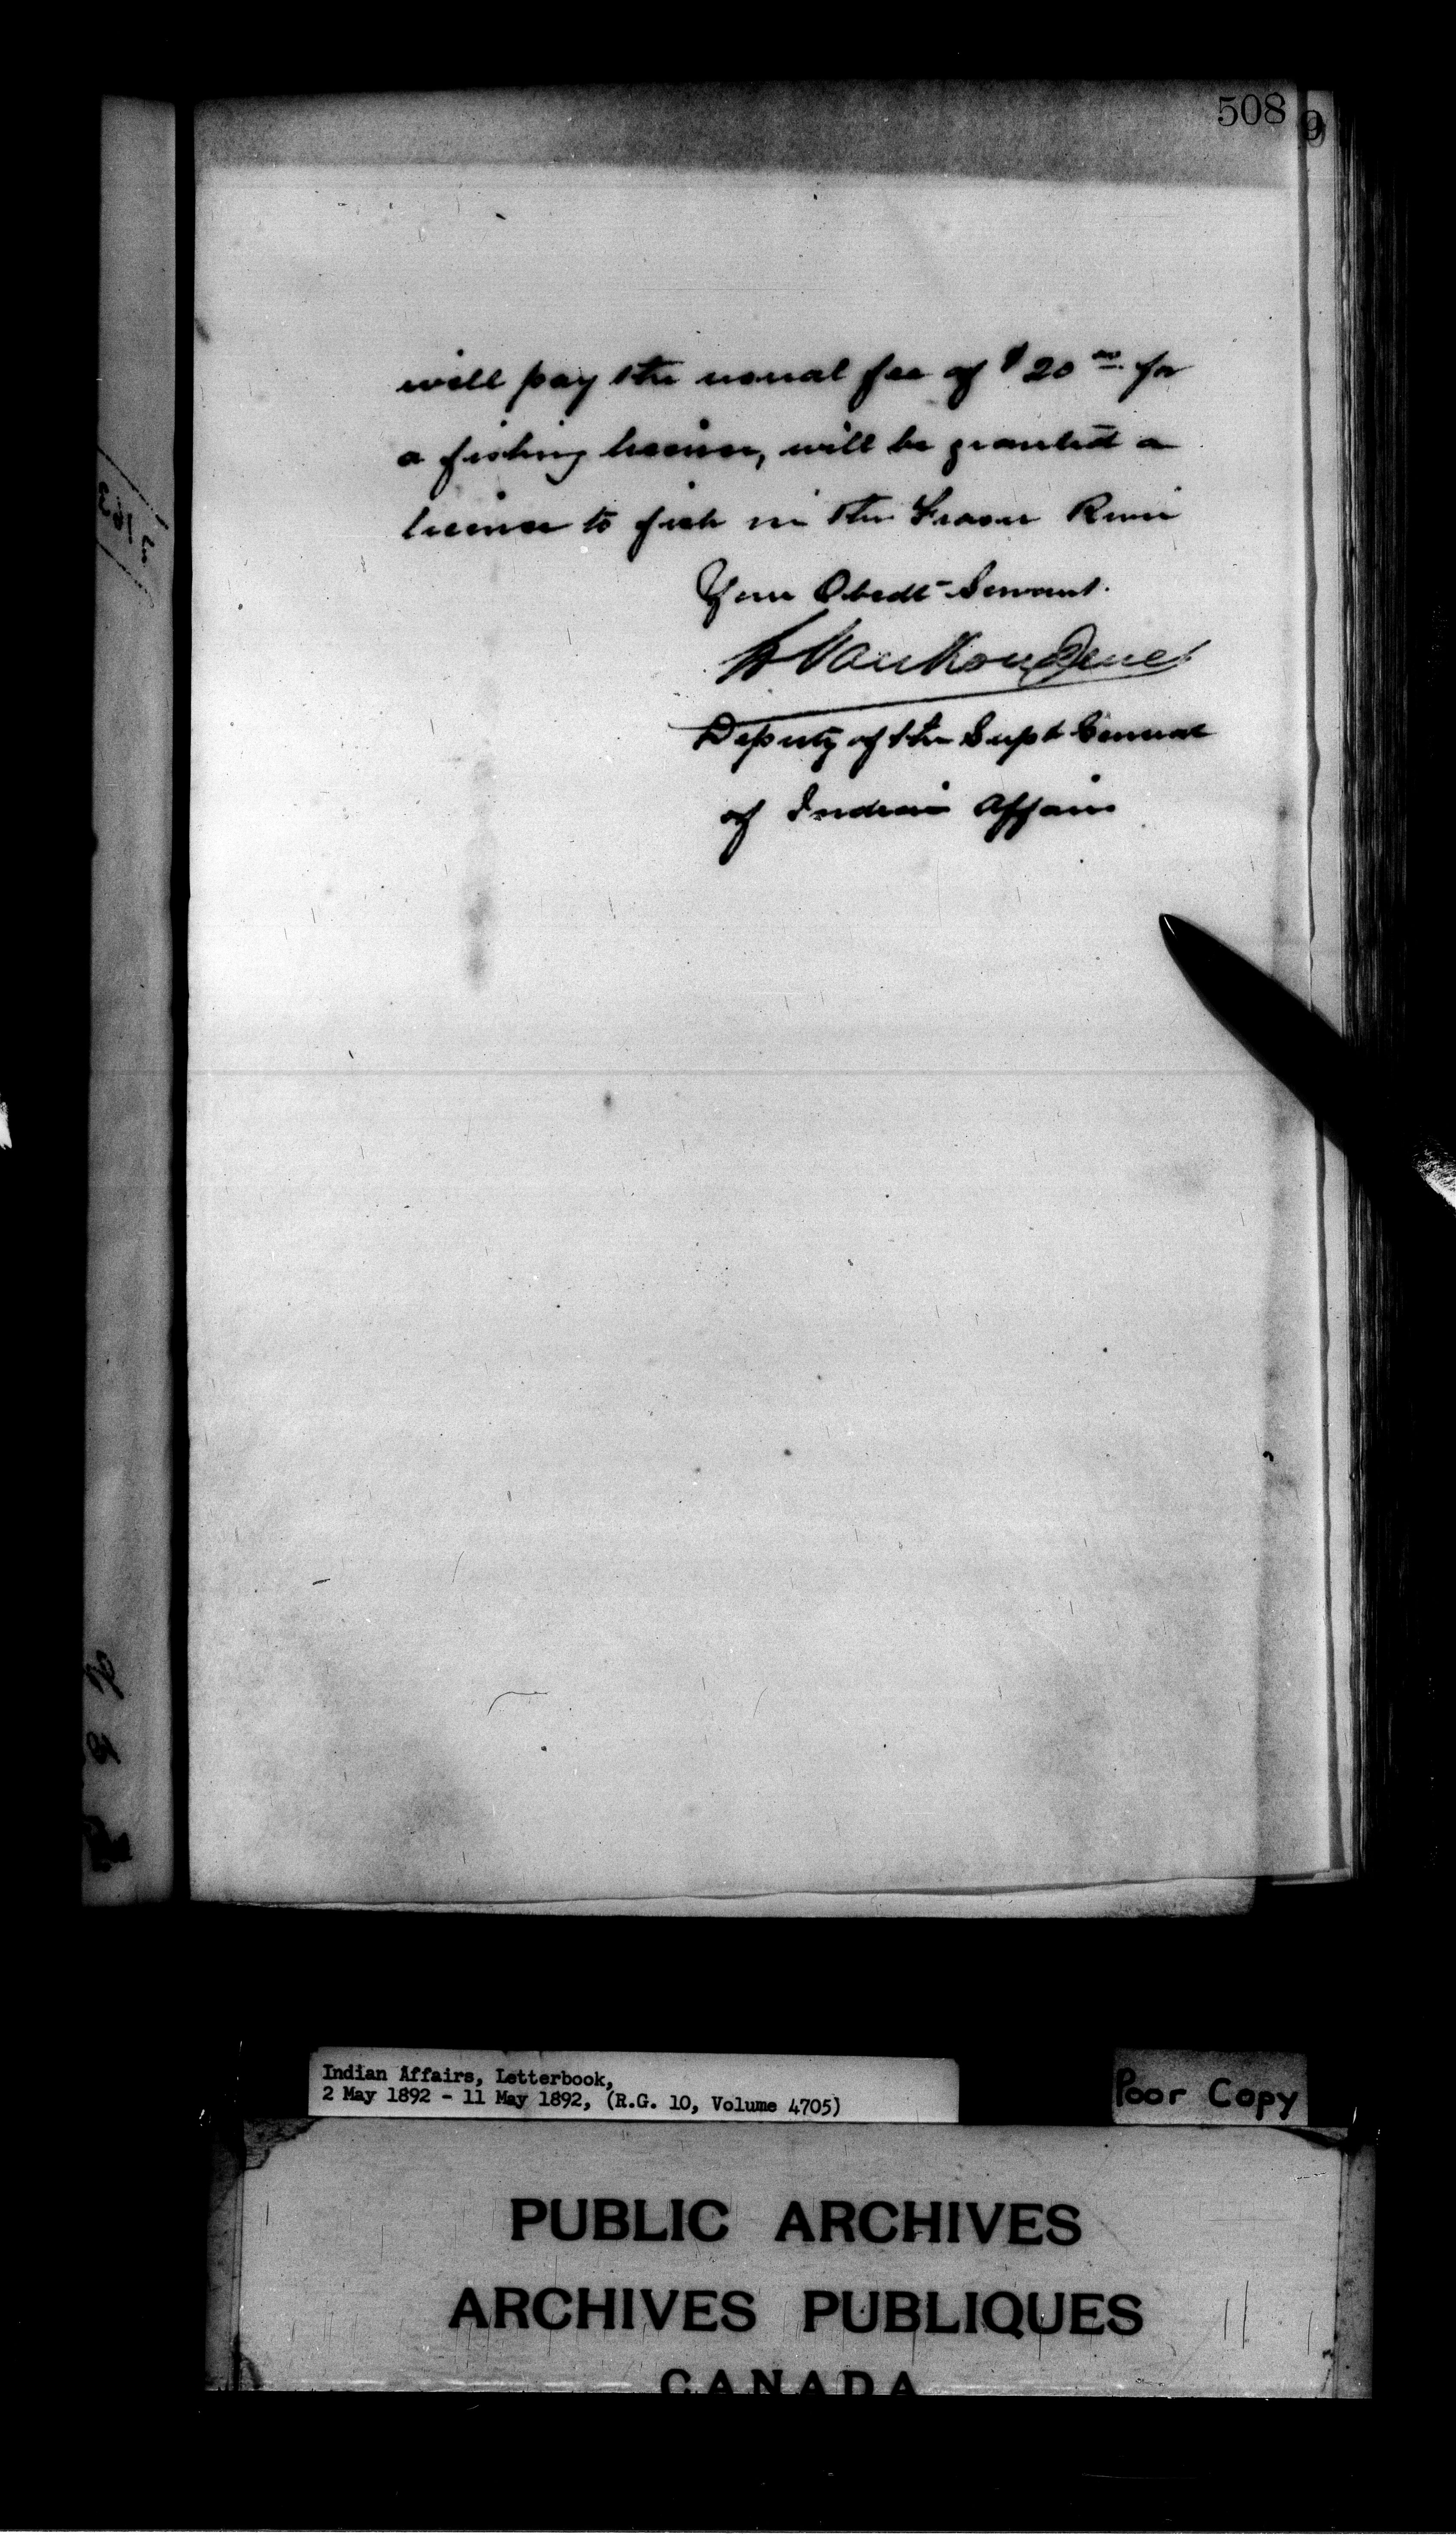 508
9
will pay the usual fee of $20 00 for
a fishing license, will be granted a
license to fish in the Fraser River
Your Obedt Servant.
L Vankoughnet
Deputy of the Supt General
of Indian Affairs
Indian Affairs, Letterbook,
2 May 1892 - 11 May 1892, (R.G. 10, Volume 4705)
Poor Copy
PUBLIC ARCHIVES
ARCHIVES PUBLIQUES
CANADA